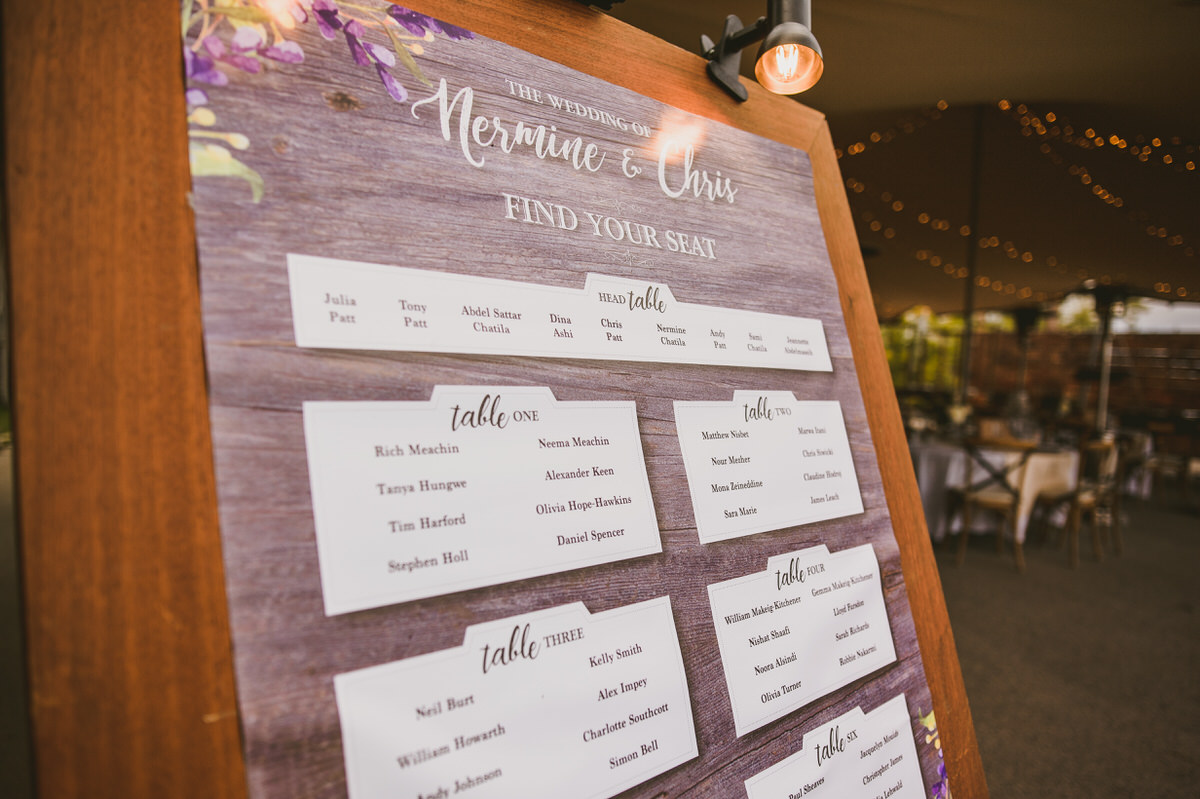 THE WEDDING OF
Nermine & Chris
FIND YOUR SEAT
HEAD table
Julia Patt
Tony Patt
Abdel Sattar Chatila
Dina Ashi
Chris Patt
Nermine Chatila
Andy Patt
Sami Chatila
Jeannette
table ONE
Rich Meachin
Neema Meachin
Tanya Hungwe
Alexander Keen
Tim Harford
Olivia Hope-Hawkins
Stephen Holl
Daniel Spencer
table TWO
Matthew Nisbet
Marwa
Nour Mezher
Chris Siwicki
Mona Zeineddine
Claudine
Sara Marie
James Leach
table THREE
Neil Burt
Kelly Smith
William Howarth
Alex Impey
Andy Johnson
Charlotte Southcott
Simon Bell
table FOUR
William Makeig-Kitchener
Gemma Makeig-Kitchener
Nishat Shaafi
Lloyd
Noora Alsindi
Sarah Richards
Olivia Turner
Robbie Nakarmi
table SIX
Paul Sheaves
Jacquelyn
Christopher James
Lehwald